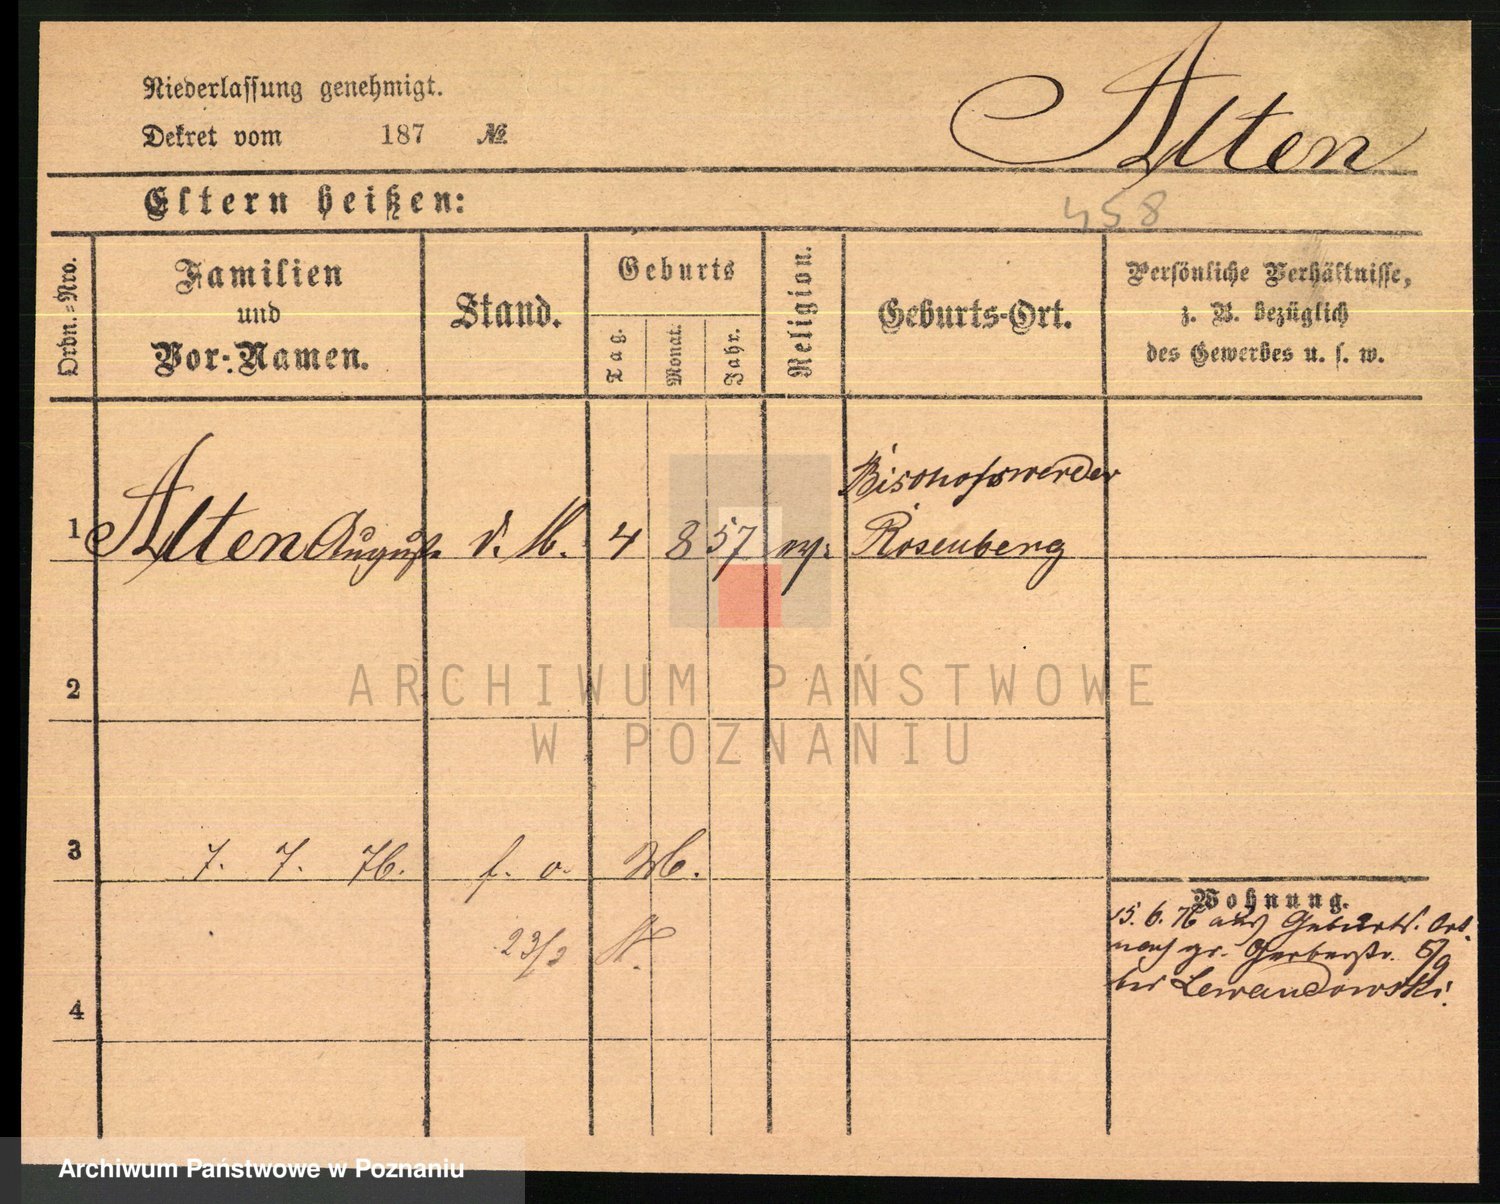 Niederlassung genehmigt.
Dekret vom 187 №
Alten
458
Eltern heißen:
Ordn.=Nro.
Familien
und
Vor=Namen.
Stand.
Geburts
Tag.
Monat.
Jahr.
Religion.
Geburts=Ort.
Persönliche Verhältnisse,
z. B. bezüglich
des Gewerbes u. s. w.
Bischofswerder
1 Alten August 4 8 57 Rosenberg
2
ARCHIWUM PAŃSTWOWE
W POZNANIU
3 7. 7. 76. f. o.
Wohnung.
15. 6. 76 aus Geburts. Ort.
nach gr. Gerberstr. 5/9
bei Lewandowski.
23/3
4
Archiwum Państwowe w Poznaniu